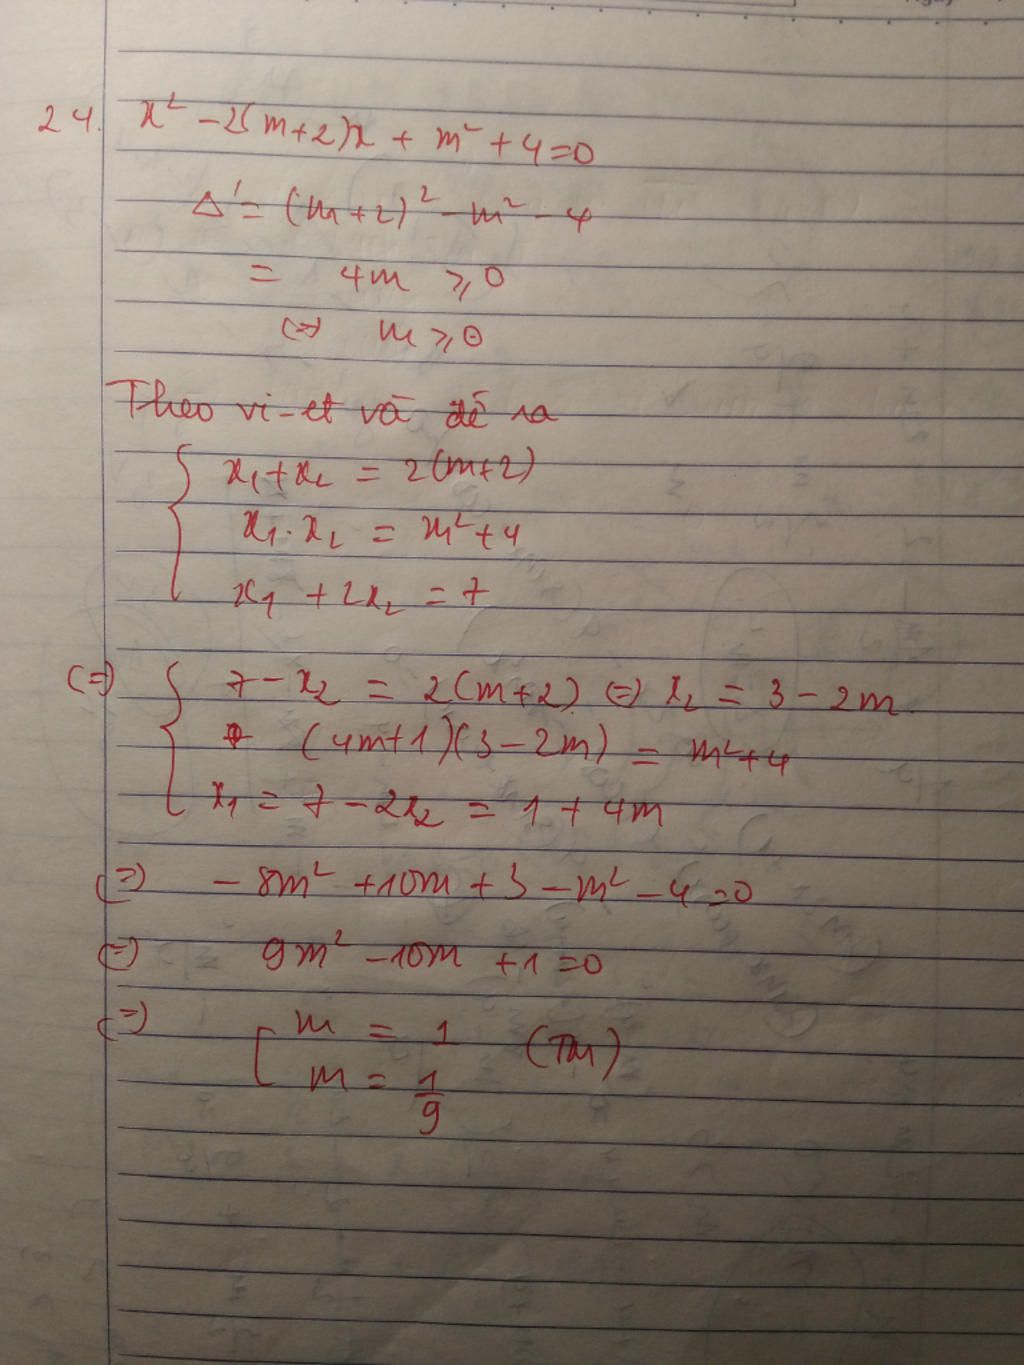 24. x² - 2(m+2)x + m² + 4 = 0
Δ' = (m+2)² - m² - 4
= 4m ⩾ 0
(=) m ⩾ 0
Theo vi-et và đề ra
x₁ + x₂ = 2(m+2)
x₁ . x₂ = m² + 4
x₁ + 2x₂ = 7
(=) 7 - x₂ = 2(m+2) (=) x₂ = 3 - 2m
(4m+1)(3-2m) = m²+4
x₁ = 7 - 2x₂ = 1 + 4m
(=) - 8m² + 10m + 3 - m² - 4 = 0
(=) 9m² - 10m + 1 = 0
(=) m = 1 (TM)
m = 1/9